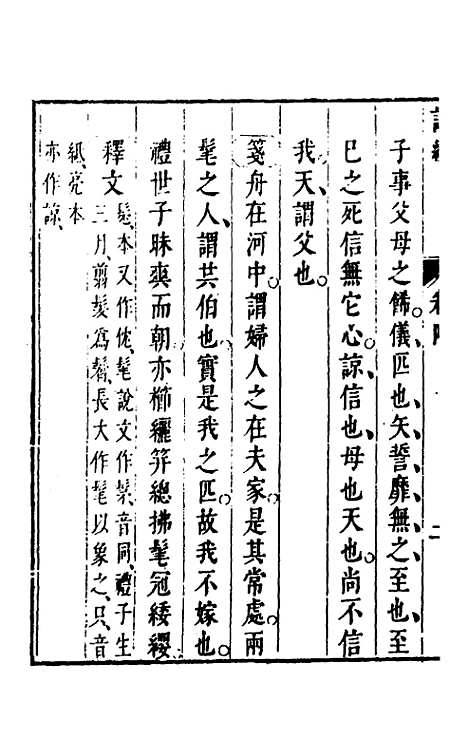 子事父母之餙。儀、匹也、矢、誓、靡、無、之、至也、至
巳之死信無它心。諒、信也、母也天也。尚不信
我天、謂父也。
箋舟在河中。謂婦人之在夫家。是其常處。兩
髦之人、謂共伯也、實是我之匹。故我不嫁也。
禮世子昧爽而朝、亦櫛纚笄總拂髦冠緌纓
釋文髧、本又作优、髦說文作髳、音同、禮子生
三月、翦髮爲鬌、長大作髦以象之、只、音
紙、亮本
亦作諒、